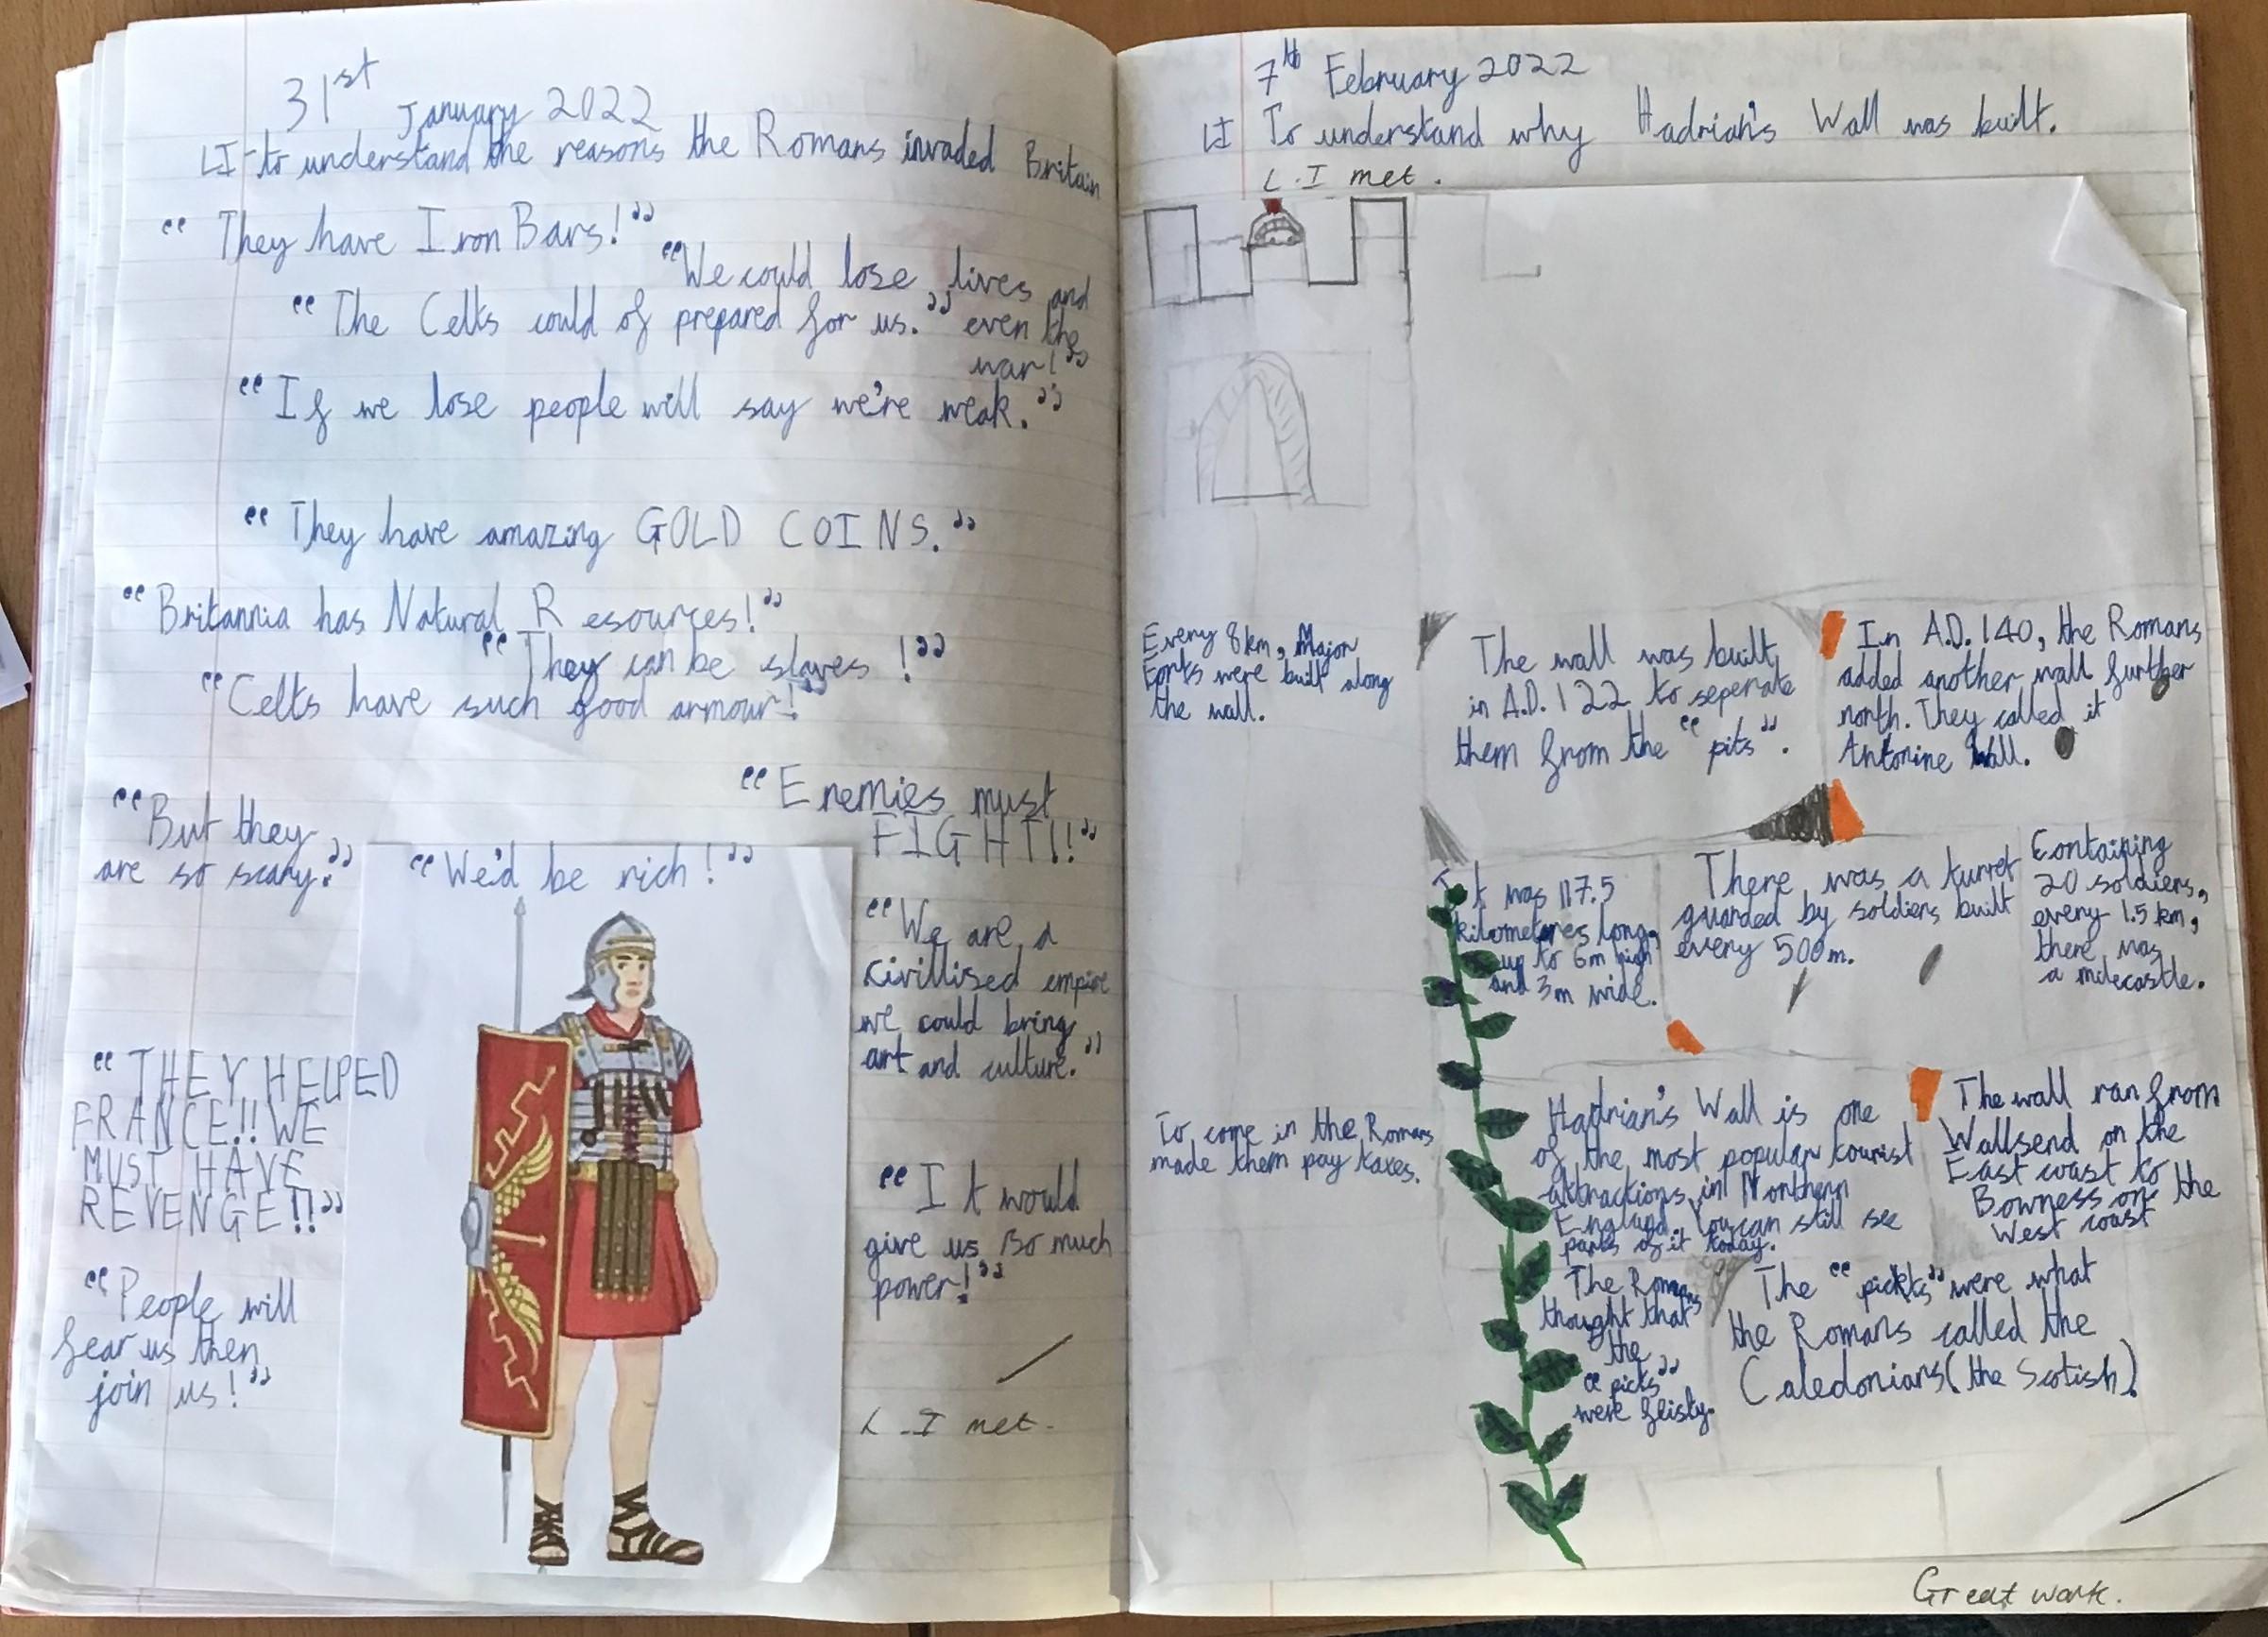 31st
January 2022
LI-to understand the reasons the Romans invaded Britain
"They have Iron Bars!"
"We could lose lives and
even the
war!"
"The Celts could of prepared for us."
"If we lose people will say we're weak."
"They have amazing GOLD COINS."
"Britannia has Natural Resources!"
"They can be slaves!"
"Celts have such good armour!"
"Enemies must
FIGHT!!"
"But they
are so scary."
"We'd be rich!"
"We are a
civillised empire
we could bring
art and culture."
"THEY HELPED
FRANCE!! WE
MUST HAVE
REVENGE!!"
"It would
give us so much
power!"
"People will
fear us then
join us!"
L.I met.
7th February 2022
LI To understand why Hadrian's Wall was built.
L.I met.
Every 8km, Major
Forts were built along
the wall.
The wall was built
in A.D. 122 to seperate
them from the "pits".
In A.D. 140, the Romans
added another wall further
north. They called it
Antonine Wall.
It was 117.5
kilometres long,
up to 6m high
and 3m wide.
There was a turret
guarded by soldiers built
every 500m.
Containing
20 soldiers,
every 1.5km,
there was
a milecastle.
To come in the Romans
made them pay taxes.
Hadrian's Wall is one
of the most popular tourist
attractions in Northern
England. You can still see
parts of it today.
The wall ran from
Wallsend on the
East coast to
Bowness on the
West coast
The Romans
thought that
the
"picks"
were feisty.
The "pickts" were what
the Romans called the
Caledonians (the Scotish).
Great work.